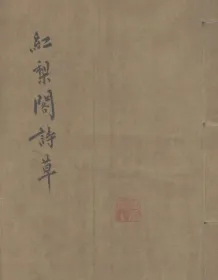 紅梨閣詩草